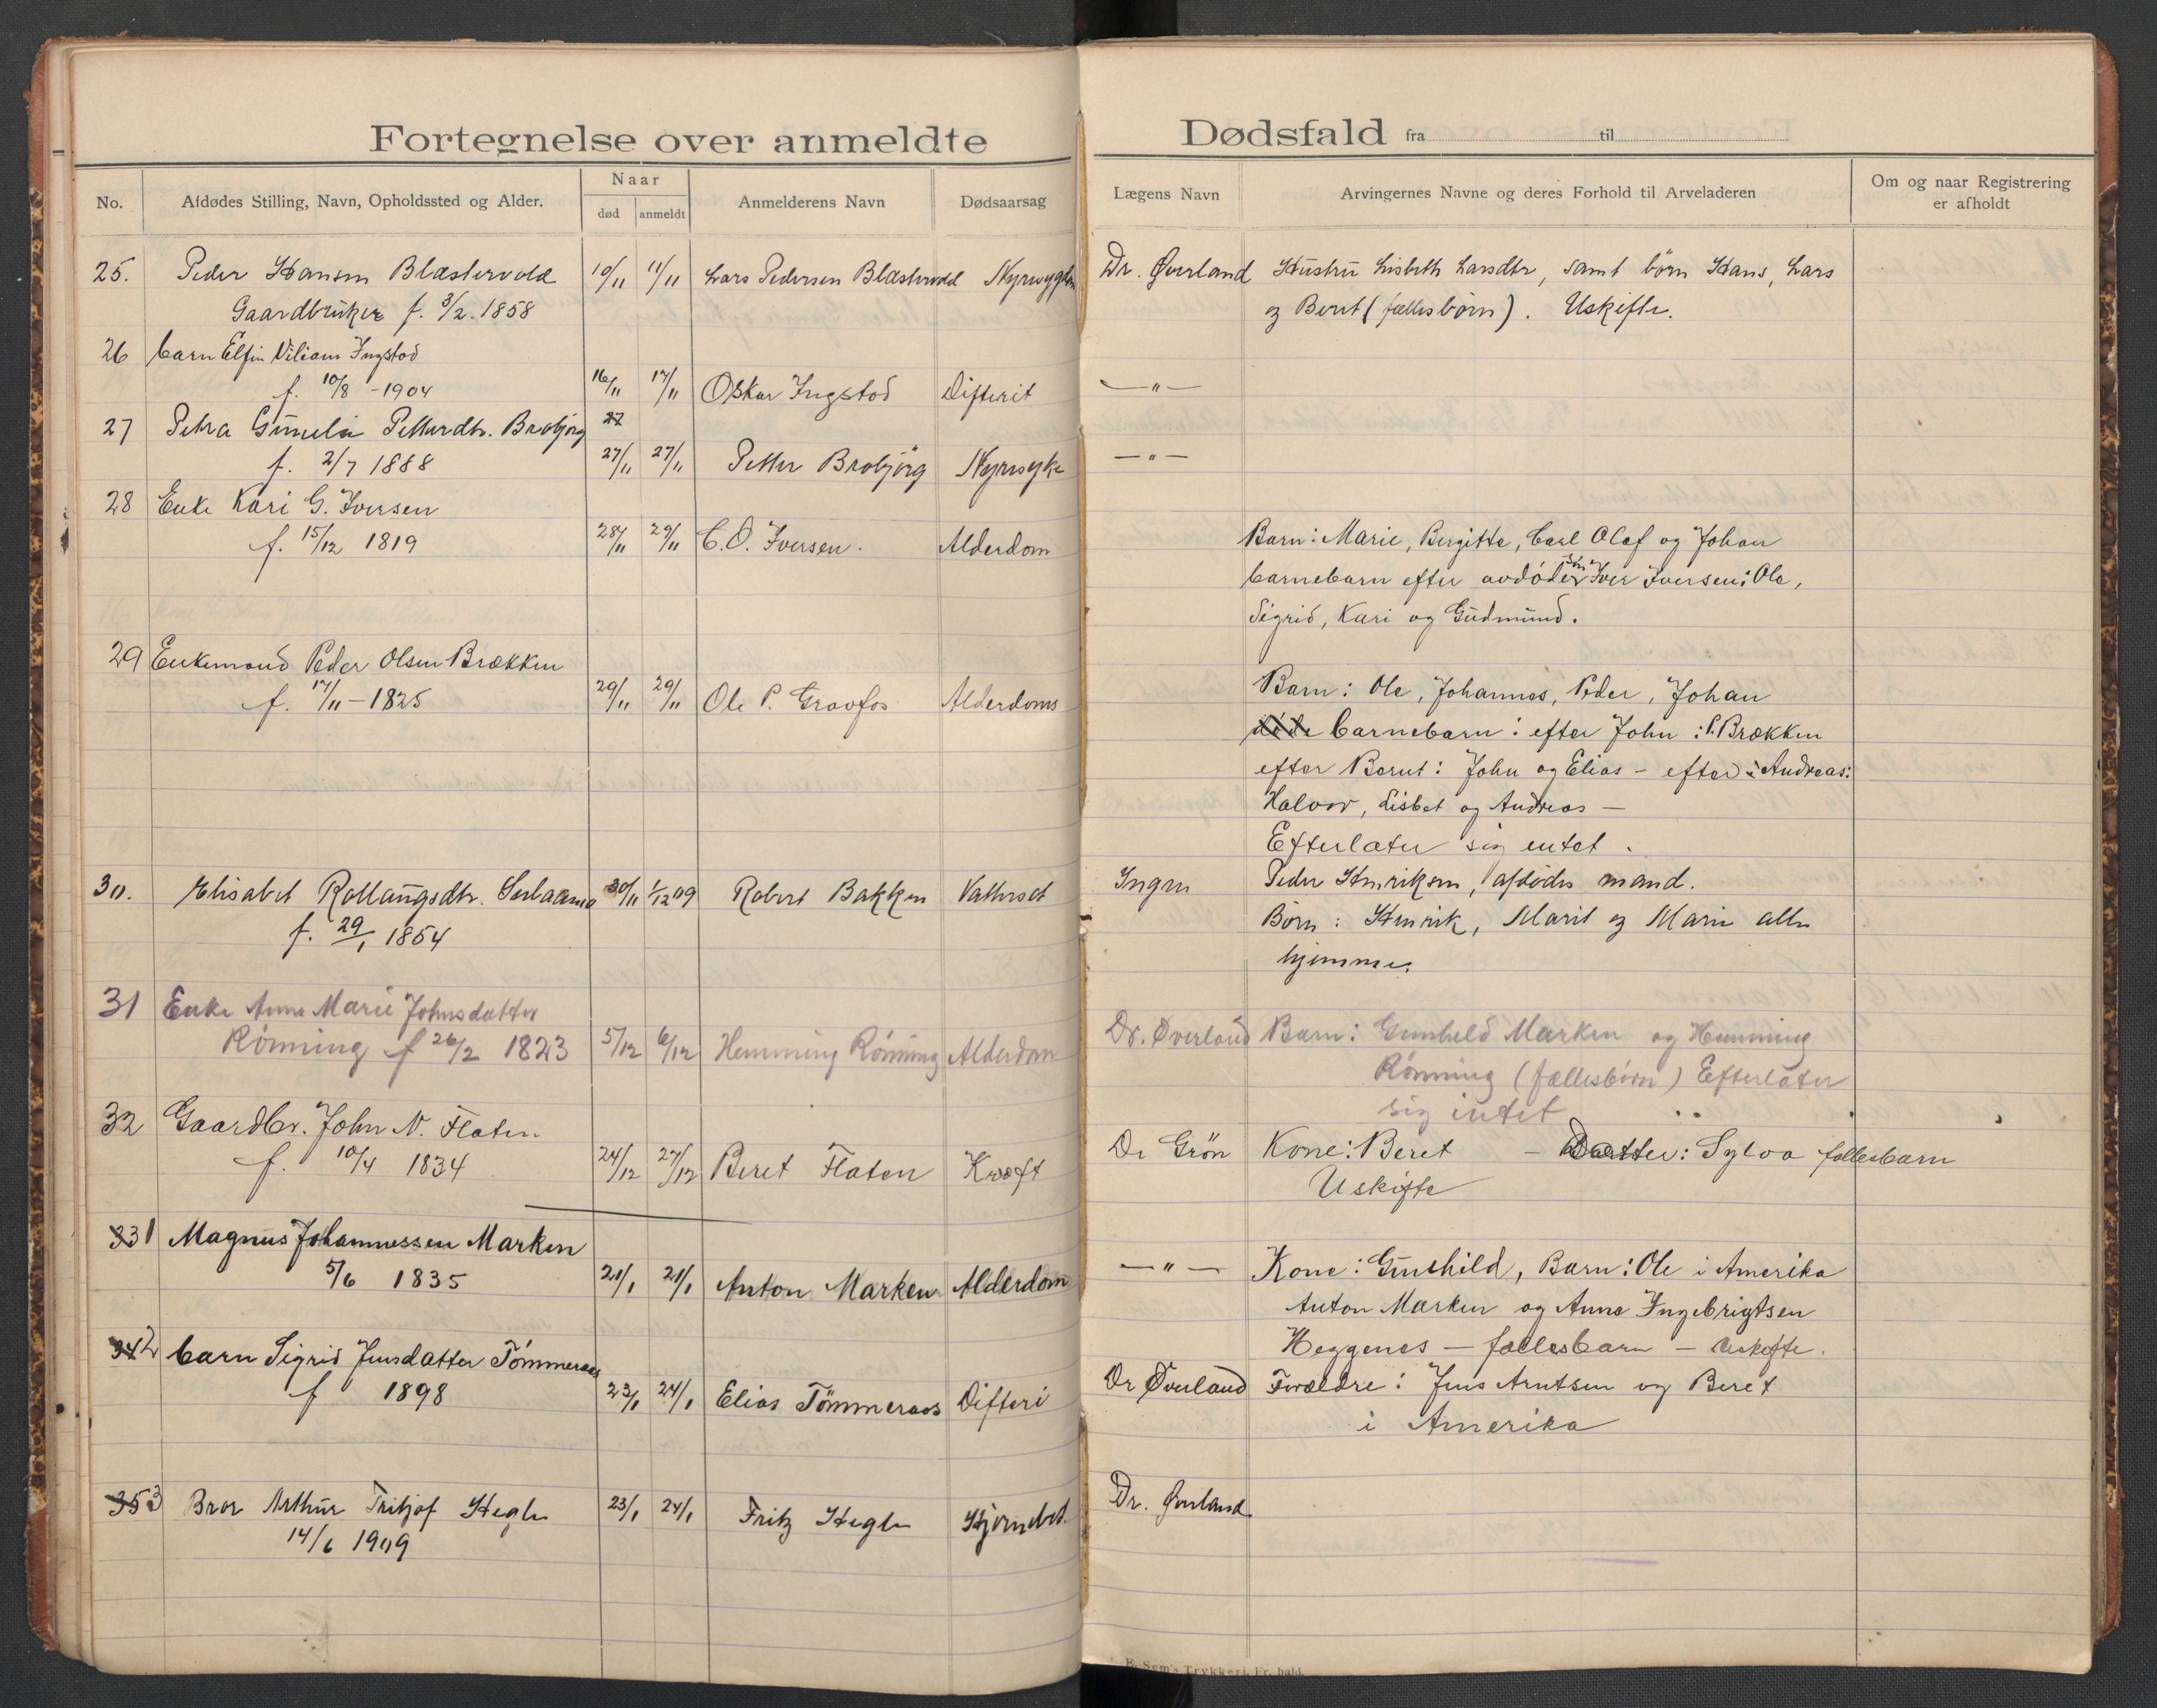 Fortegnelse over anmeldte Dødsfald fra til
No.
Afdødes Stilling, Navn, Opholdssted og Alder.
Naar
død
anmeldt
Anmelderens Navn
Dødsaarsag
Lægens Navn
Arvingernes Navne og deres Forhold til Arveladeren
Om og naar Registrering
er afholdt
25. Peder Hansen Blæstervold 10/11 11/11 Lars Pedersen Blæstervold Dr. Øverland Hustru Lisbeth Larsdtr, samt börn Hans, Lars
Gaardbruker f. 3/2. 1858 og Berit (fællesbörn). Uskifte.
26 barn Elfin Viliam Ingstad
f. 10/8 - 1904 16/11 17/11 Oskar Ingstad Difterit — " —
27 Petra Gunelie Petterdtr. Brobjörg 27
f. 2/7 1888 27/11 27/11 Petter Brobjörg Nyresyke — " —
28 Enke Kari G. Iversen
f. 15/12 1819 28/11 29/11 C. O. Iversen. Alderdom Barn: Marie, Bergitte, Carl Olaf og Johan
barnebarn efter avdøde søn Iver Iversen: Ole,
Sigrid, Kari og Gudmund.
29 Enkemand Peder Olsen Brækken
f. 17/11 - 1825 29/11 29/11 Ole P. Graafos Alderdoms Barn: Ole, Johannes, Peder, Johan
døde barnebarn: efter John: P. Brækken
efter Berut: John og Elias - efter: Andreas:
Halvor, Lisbet og Andreas —
Efterlater sig intet.
30. Elisabet Rollaugsdtr. 30/11 1/12 09 Robert Bakken Vattersot Peder Henriksen, afdødes mand.
f. 29/1 1854 Börn: Henrik, Marit og Marie alle
hjemme.
31 Enke Anne Marie Johnsdatter
Rønning f 26/2 1823 5/12 6/12 Hemming Rønning Alderdom Dr. Øverland Barn: Gunhild Marken og Hemming
Rønning (fællesbörn) Efterlater
sig intet
32 Gaardbr. John N. Flaten
f. 10/4 1834 24/12 27/12 Beret Flaten Kræft Dr Grön Kone: Beret - Datter: Sylva fellesbarn
Uskifte
33 1 Magnus Johannessen Marken
5/6 1835 21/1 21/1 Anton Marken Alderdom — " — Kone: Gunhild, Barn: Ole i Amerika
Anton Marken og Anna Ingebrigtsen
Heggenes — fællesbarn — Uskifte.
34 2 barn Sigrid Jensdatter Tömmeraas
f 1898 23/1 24/1 Elias Tömmeraas Difteri Dr Øverland Forældre: Jens Arntsen og Beret
i Amerika
35 3 Bror Arthur Fritjof Hegle 23/1 24/1 Fritz Hegle Dr. Øverland
14/6 1909
E. Sem's Trykkeri, Fr. hald.